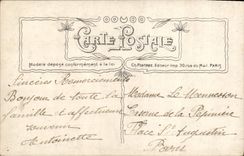 CARTE POSTALE
Modèle déposé conformément à la loi
Editeur Imp. 30 rue du Mail PARIS
Sincères Remerciements
Bonjour de toute la
famille et affectueux
souvenir
Antoinette
Madame Le Hennesson
Caserne de la Pépinière
Place St Augustin
Paris